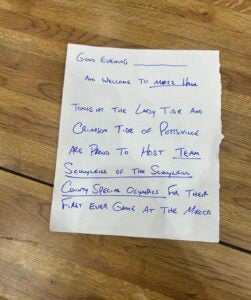 Good Evening ________
And Welcome To Martz Hall
Tonight the Lady Tide And
Crimson Tide of Pottsville
Are Proud To Host Team
Schuylkill of The Schuylkill
County Special Olympics For Their
First Ever Game At The Mecca